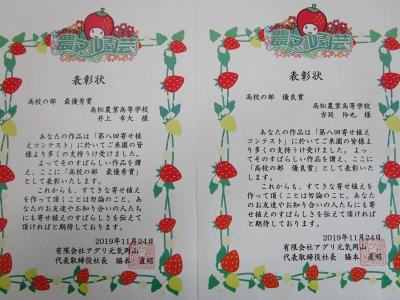 農マル園芸
表彰状
高校の部 最優秀賞
高松農業高等学校
井上 幸大 様
あなたの作品は「第八回寄せ植え
コンテスト」に於いてご来園の皆
様より多くの支持うけ受けました。
よってそのすばらしい作品を讃
え、ここに「高校の部 最優秀賞」
として表彰いたします。
これからも、すてきな寄せ植え
を作って頂くことは勿論のこと、あ
なたのお友達やお知り合いの人たち
にも寄せ植えのすばらしさを伝えて
頂ければと期待しております。
2019年11月24日
有限会社アグリ元気岡山
代表取締役社長 脇本 直昭
農マル園芸
表彰状
高校の部 優良賞
高松農業高等学校
吉延 伶也 様
あなたの作品は「第八回寄せ植え
コンテスト」に於いてご来園の皆様
より多くの支持うけ受けました。よっ
てそのすばらしい作品を讃え、ここに
「高校の部 優良賞」として表彰いた
します。
これからも、すてきな寄せ植えを
作って頂くことは勿論のこと、あな
たのお友達やお知り合いの人たちに
も寄せ植えのすばらしさを伝えて頂
ければと期待しております。
2019年11月24日
有限会社アグリ元気岡山
代表取締役社長 脇本 直昭